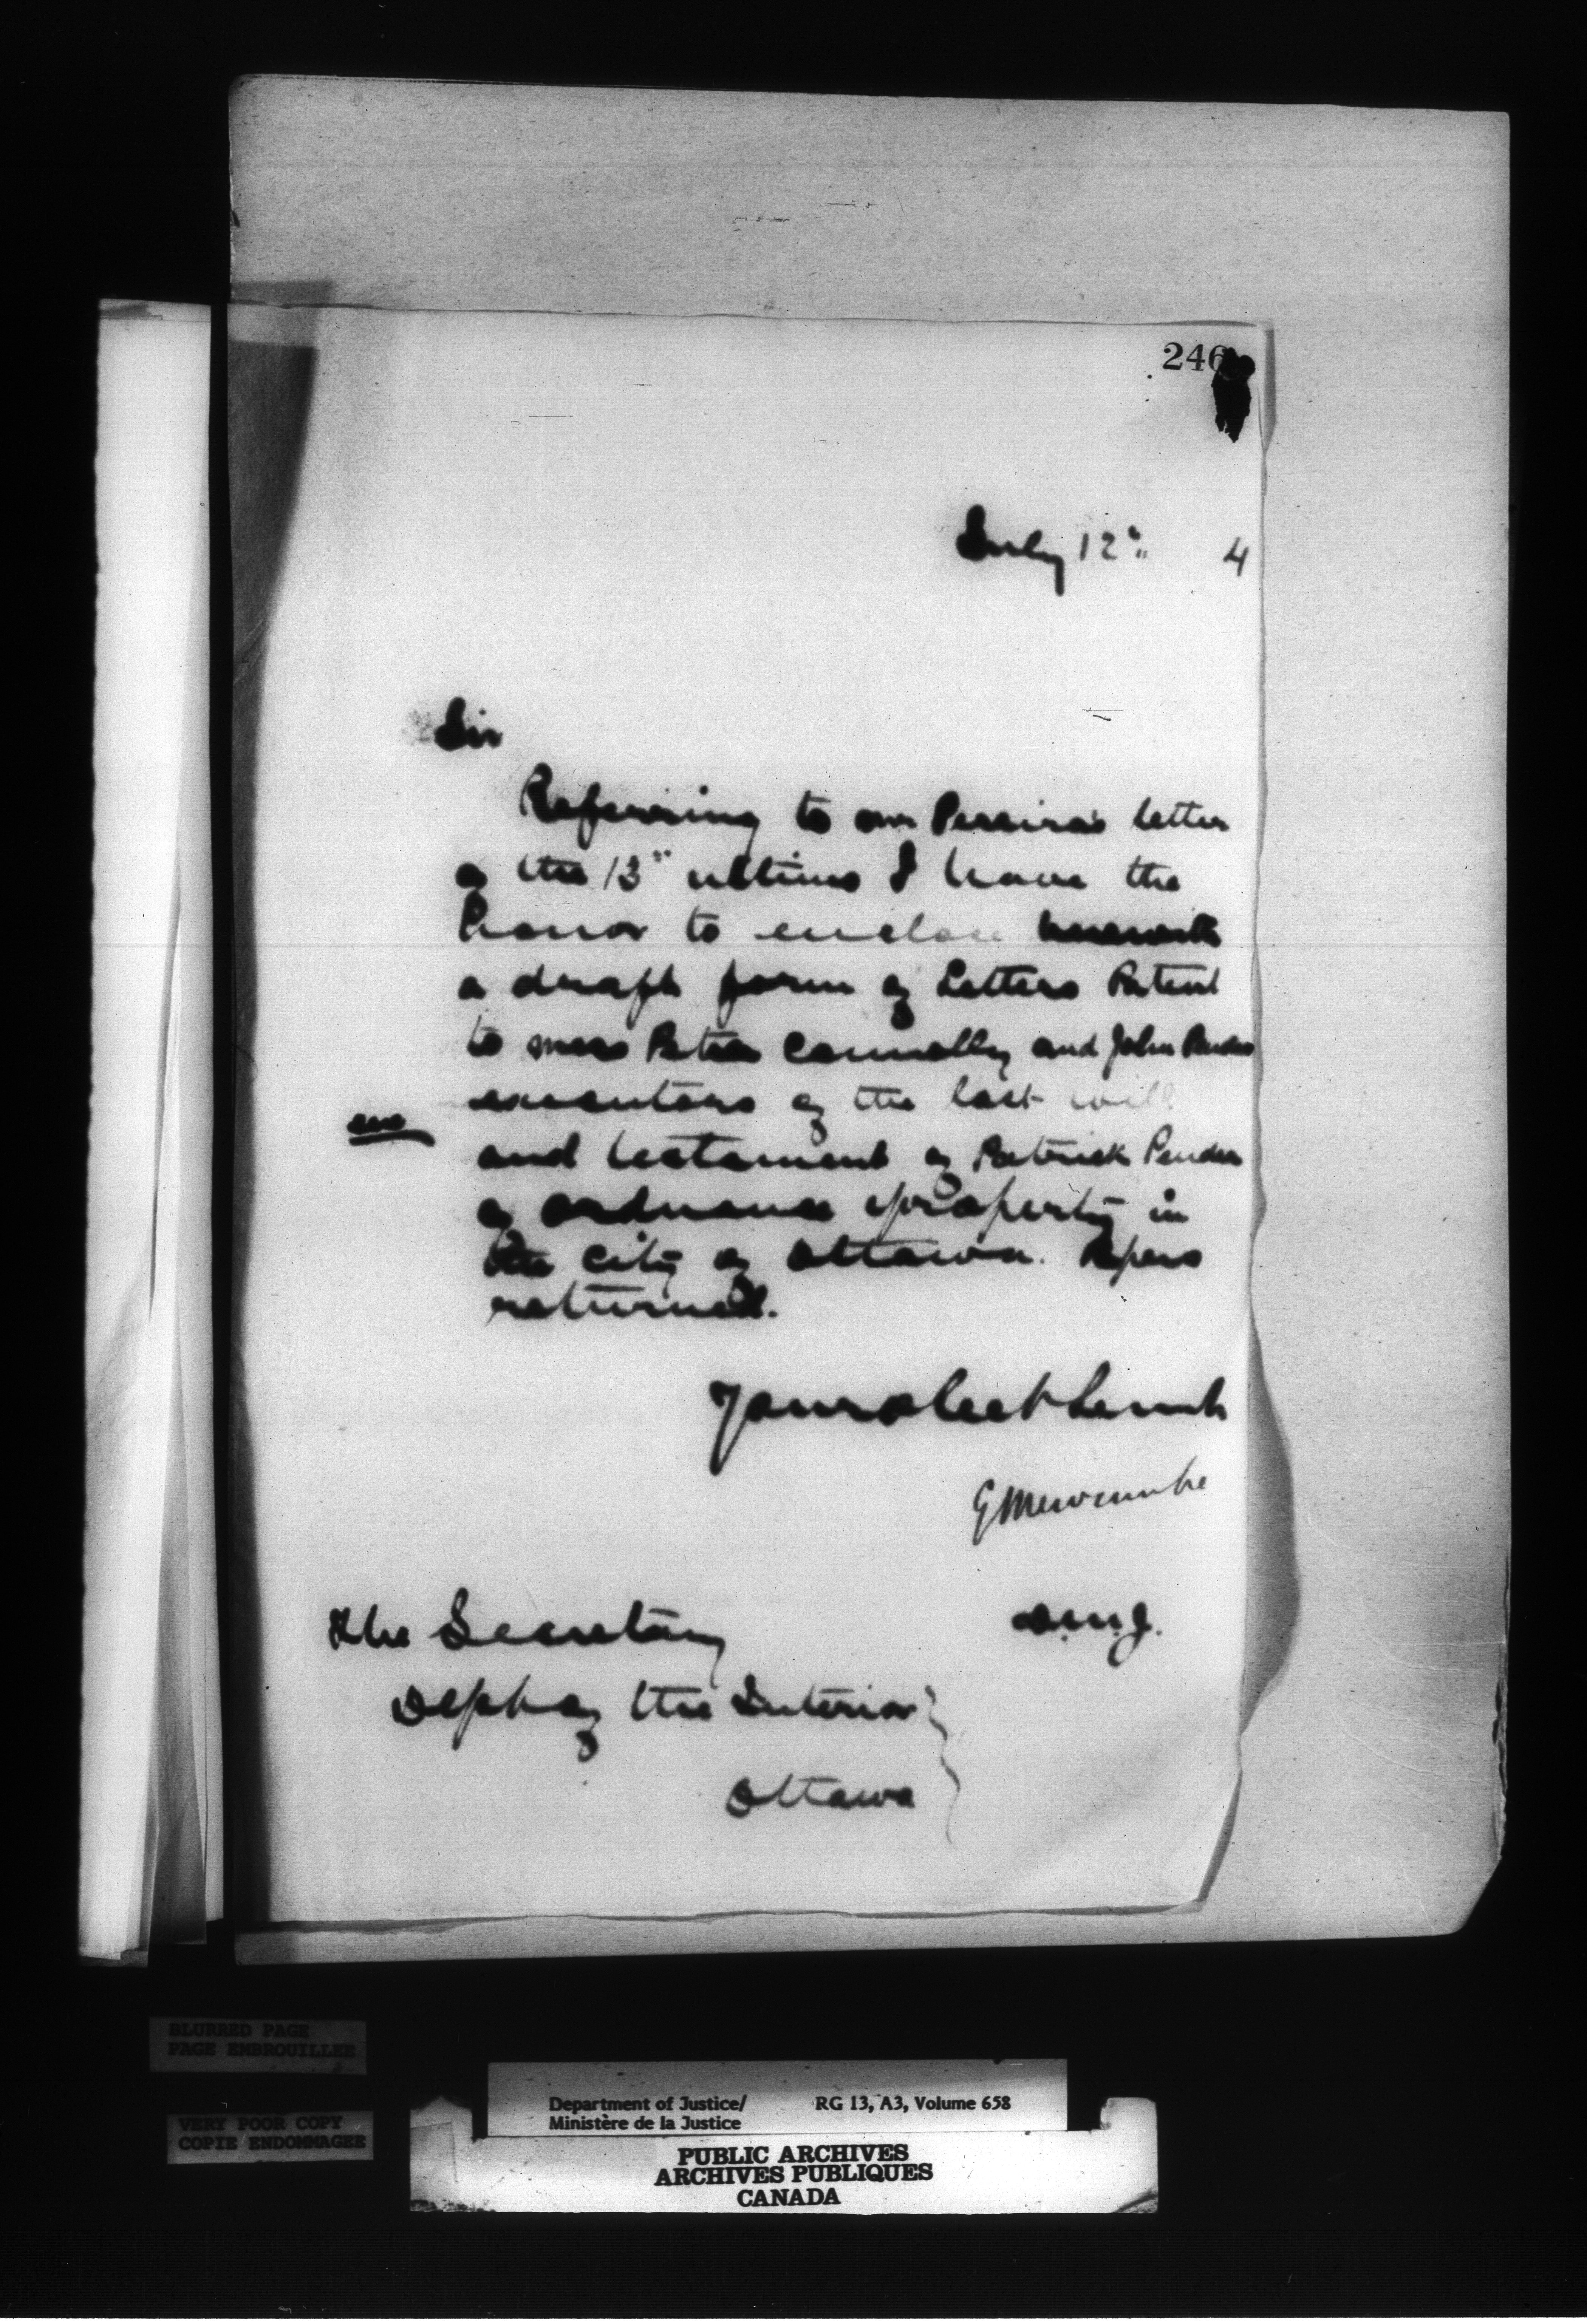 246
July 12" 4
Sir
Referring to Mr Pereira's letter
of the 13" ultimo I have the
honor to enclose herewith
a draft form of Letters Patent
to Mess Peter Connolly and John Pender
executors of the last will
enc
and testament of Patrick Pender
of ordnance property in
the City of Ottawa. Papers
returned.
Your obedt Servt
E M Newcombe
D.M.J.
The Secretary
Dept of the Interior
Ottawa
BLURRED PAGE
PAGE EMBROUILLEE
VERY POOR COPY
COPIE ENDOMMAGEE
Department of Justice/ RG 13, A3, Volume 658
Ministère de la Justice
PUBLIC ARCHIVES
ARCHIVES PUBLIQUES
CANADA